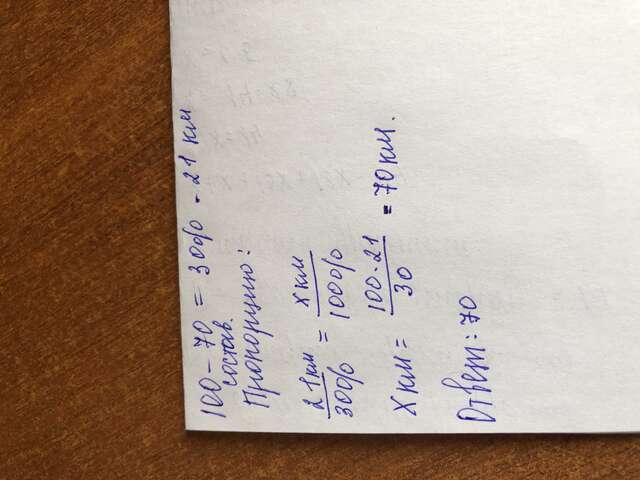 100 - 70 = 30% - 21 км
состав.
Пропорцию:
21км/30% = x км/100%
X км = 100·21/30 = 70 км.
Ответ: 70